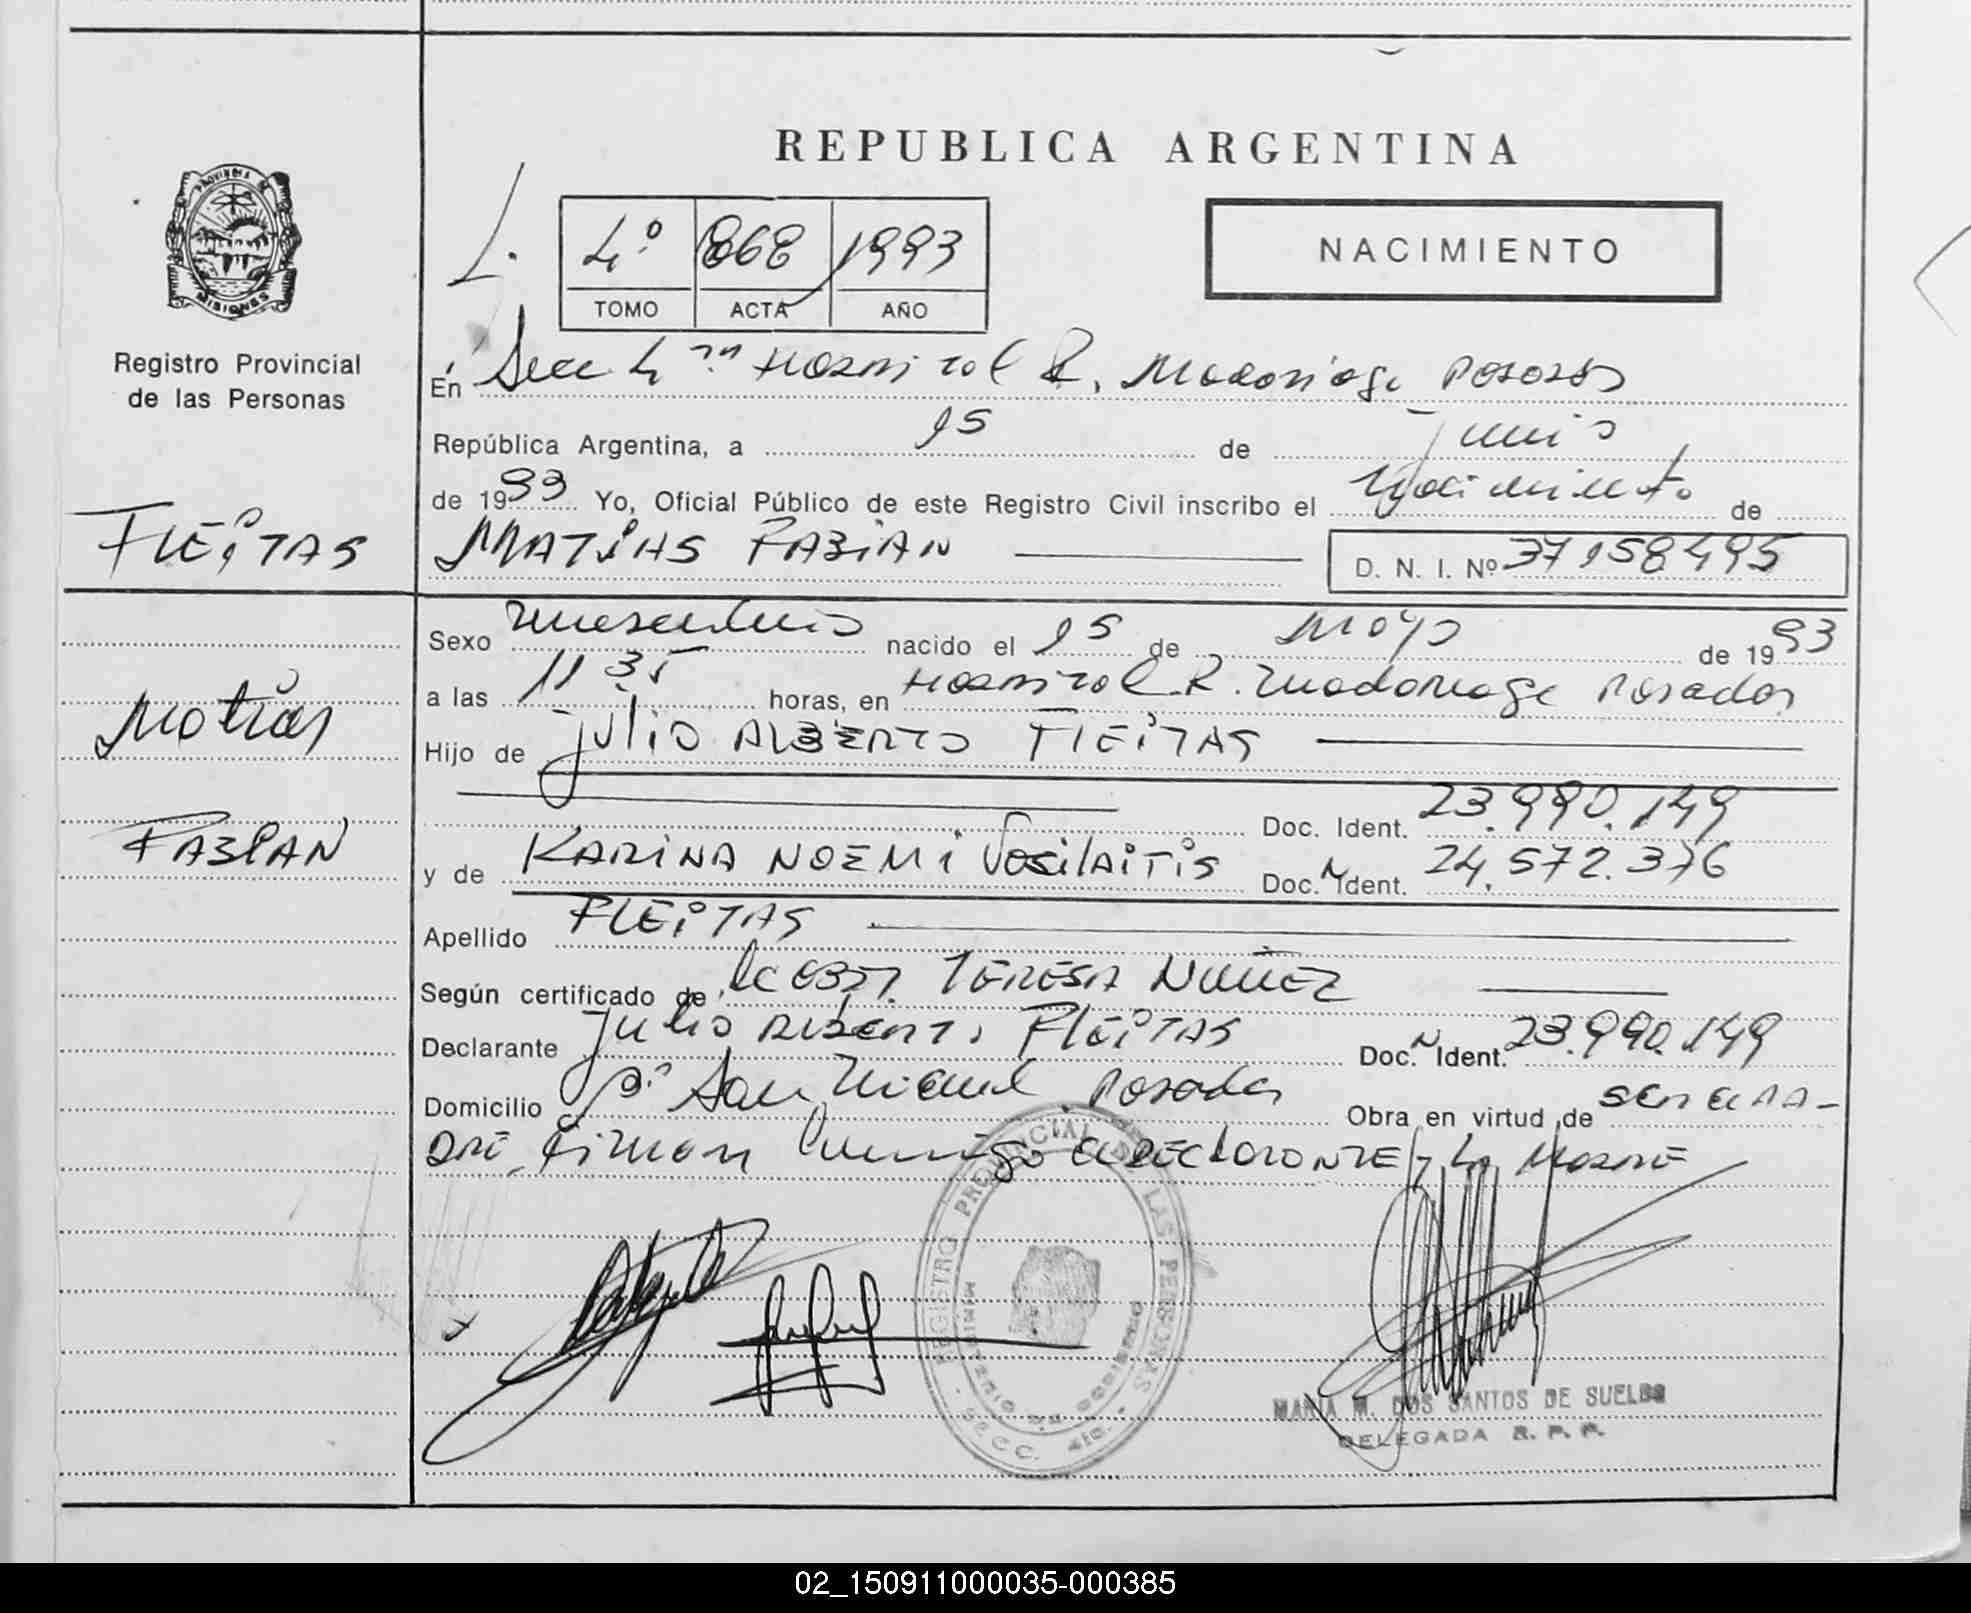 REPUBLICA ARGENTINA
PROVINCIA DE
MISIONES
Registro Provincial
de las Personas
L.
4º 868 1993
TOMO ACTA AÑO
NACIMIENTO
En Secc 4ª Hospital R. Madariaga Posadas
República Argentina, a 15 de Junio
de 1993 Yo, Oficial Público de este Registro Civil inscribo el Nacimiento de
FLEITAS
MATIAS FABIAN
D. N. I. Nº 37158495
Sexo masculino nacido el 15 de Mayo de 1993
a las 11 35 horas, en Hospital R. Madariaga Posadas
Matias
Hijo de Julio ALBERTO FLEITAS
Doc. Ident. 23.990.149
FABIAN
y de KARINA NOEMI Vasilaitis Doc. N Ident. 24.572.376
Apellido FLEITAS
Según certificado de TERESA NUÑEZ
Declarante Julio Alberto FLEITAS Doc. N Ident. 23.990.149
Domicilio Bº San Miguel Posadas Obra en virtud de ser el PA-
DRE, Firman Conmigo el DECLARANTE y La MADRE
REGISTRO PROVINCIAL DE LAS PERSONAS
MINISTERIO DE GOBIERNO
SECC. 4ta.
MARIA M. DOS SANTOS DE SUELDO
DELEGADA R. P. P.
02_150911000035-000385